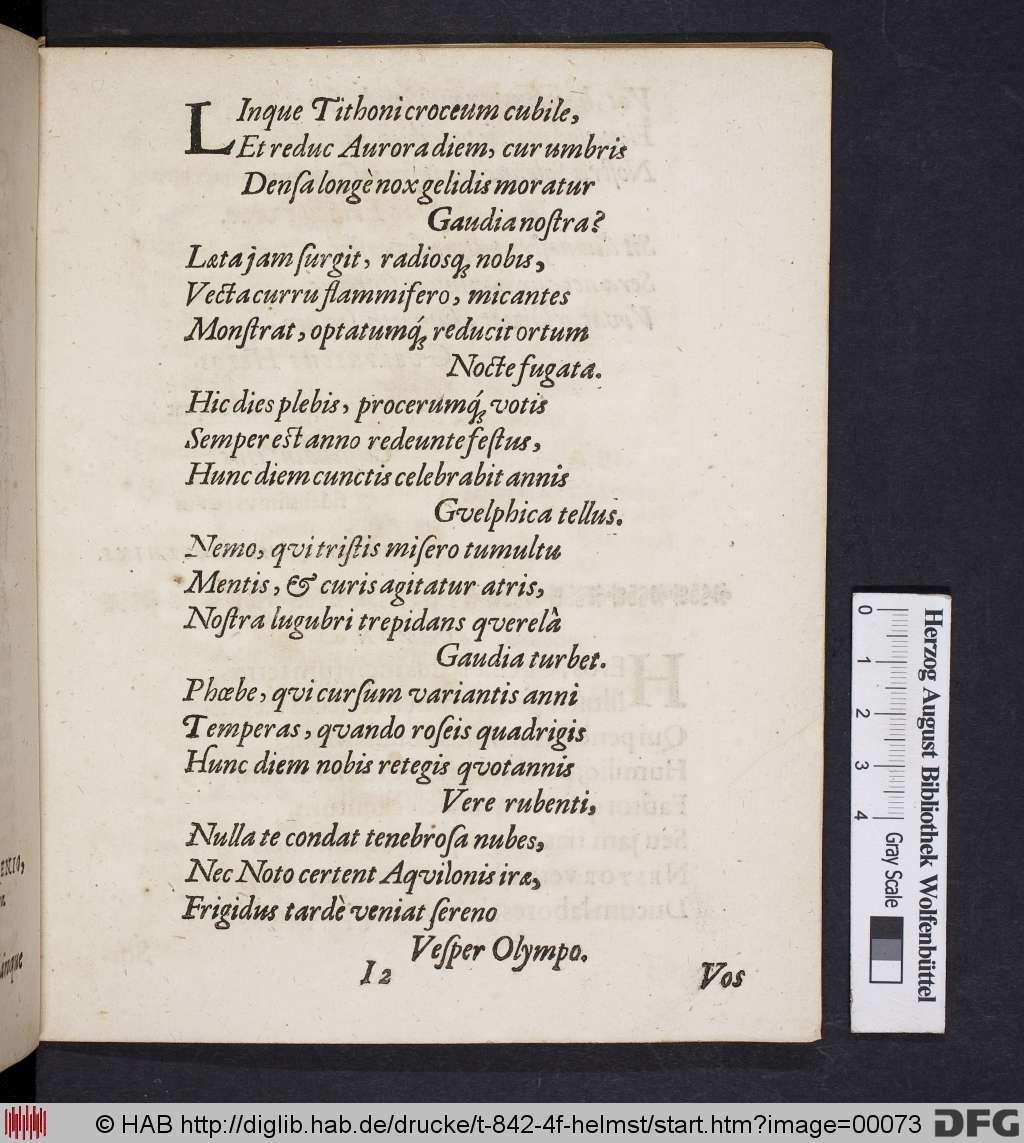 LInque Tithoni croceum cubile,
Et reduc Aurora diem, cur umbris
Denſa longè nox gelidis moratur
Gaudia noſtra?
Læta jam ſurgit, radiosq́; nobis,
Vecta curru flammifero, micantes
Monſtrat, optatumq́; reducit ortum
Nocte fugata.
Hic dies plebis, procerumq́; votis
Semper est anno redeunte feſtus,
Hunc diem cunctis celebrabit annis
Gvelphica tellus.
Nemo, qvi triſtis miſero tumultu
Mentis, & curis agitatur atris,
Noſtra lugubri trepidans qverelâ
Gaudia turbet.
Phœbe, qvi curſum variantis anni
Temperas, qvando roſeis quadrigis
Hunc diem nobis retegis qvotannis
Vere rubenti,
Nulla te condat tenebroſa nubes,
Nec Noto certent Aqvilonis iræ,
Frigidus tardè veniat ſereno
Veſper Olympo.
I 2
Vos
0 1 2 3 4
Herzog August Bibliothek Wolfenbüttel
Gray Scale
© HAB http://diglib.hab.de/drucke/t-842-4f-helmst/start.htm?image=00073
DFG